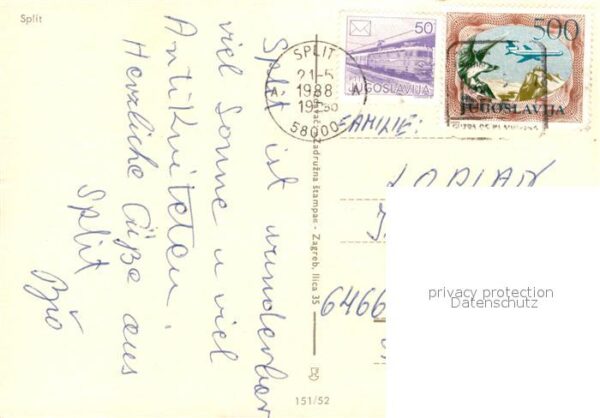 Split
Split ist wunderbar
viel Sonne u viel
Antikviteten.
Herzliche Grüße aus
Split
50
JUGOSLAVIJA
500
JUGOSLAVIJA
SPLIT
21-5
1988
A A
58000
FAMILIE:
6466
Zadružna štampa - Zagreb, Ilica 35
151/52
privacy protection
Datenschutz